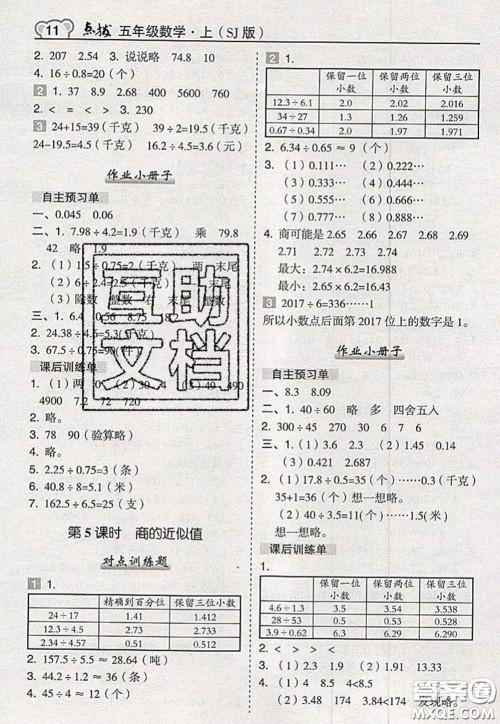 11 点拨 五年级数学·上(SJ版)
2. 207 2.54 3. 说说略 74.8 10
4. 16÷0.8=20(个)
2 1. 37 8.9 2.68 400 5600 760
2. < = < > 3. 230
3 24+15=39(千克) 39÷2=19.5(千克)
24-19.5=4.5(千克) 16.2÷4.5=3.6(千克)
作业小册子
自主预习单
一、0.045 0.06
二、1. 7.98÷4.2=1.9(千克) 乘 79.8
42 略 1.9
2. (1) 1.5÷0.75=2(千克) 两 末尾
(2) 末尾
(3) 除数 整数 右 末尾
三、1. 6.4 0.56 8.75 18
2. 24.38÷4.6=5.3(千克)
3. 67.5÷0.75=90(件)
课后训练单
1. (1) 两 49
4900 7.2 72 720
2. 略。
3. 78 90(验算略)
4. 略。
5. 2.25÷0.75=3(条)
6. 40.8÷8=5.1(米)
7. 162.5÷6.5=25(支)
第5课时 商的近似值
对点训练题
1 1.
精确到百分位 保留三位小数
24÷17 1.41 1.412
12.3÷4.5 2.73 2.733
2.34÷4.57 0.51 0.512
2. 157.5÷5.5≈28.64(吨)
3. 44.2÷1.2≈36(条)
4. 45÷4≈12(个)
2 1.
保留一位小数 保留两位小数 保留三位小数
12.3÷6.1 2.0 2.02 2.016
34÷27 1.3 1.26 1.259
0.67÷0.34 2.0 1.97 1.971
2. 6.34÷0.65≈9(个)
3. (1) 0.111… (2) 0.222…
(3) 0.333… (4) 0.444…
(5) 0.555… (6) 0.666…
(7) 0.777… (8) 0.888…
4. 商可能是 2.65 2.66 2.67 2.68
2.69 2.70 2.71 2.72 2.73 2.74
最大:2.74×6.2=16.988
最小:2.65×6.2=16.43
3 2017÷6=336……1
所以小数点后面第2017位上的数字是1。
作业小册子
自主预习单
一、8.3 8.09
二、1. 40÷60 略 多 四舍五入
三、1. (1) 3.85 0.21 (2) 0.030 1.287
2. (1) 17.8÷0.5=35(個)……0.3(千克)
35+1=36(个) 想一想略。
(2) 37.5÷2.2=17(件)……0.1(米)
想一想略。
课后训练单
1.
保留一位小数 保留两位小数 保留三位小数
4.6÷1.3 3.5 3.54 3.538
28÷53 0.5 0.53 0.528
3.9÷0.62 6.3 6.29 6.290
2. < > > >
3. (1) 4 8.5 4<8.5
(2) 3.48 174 3.48<174 发现略。
互助文档
答案圈
MXQE.COM